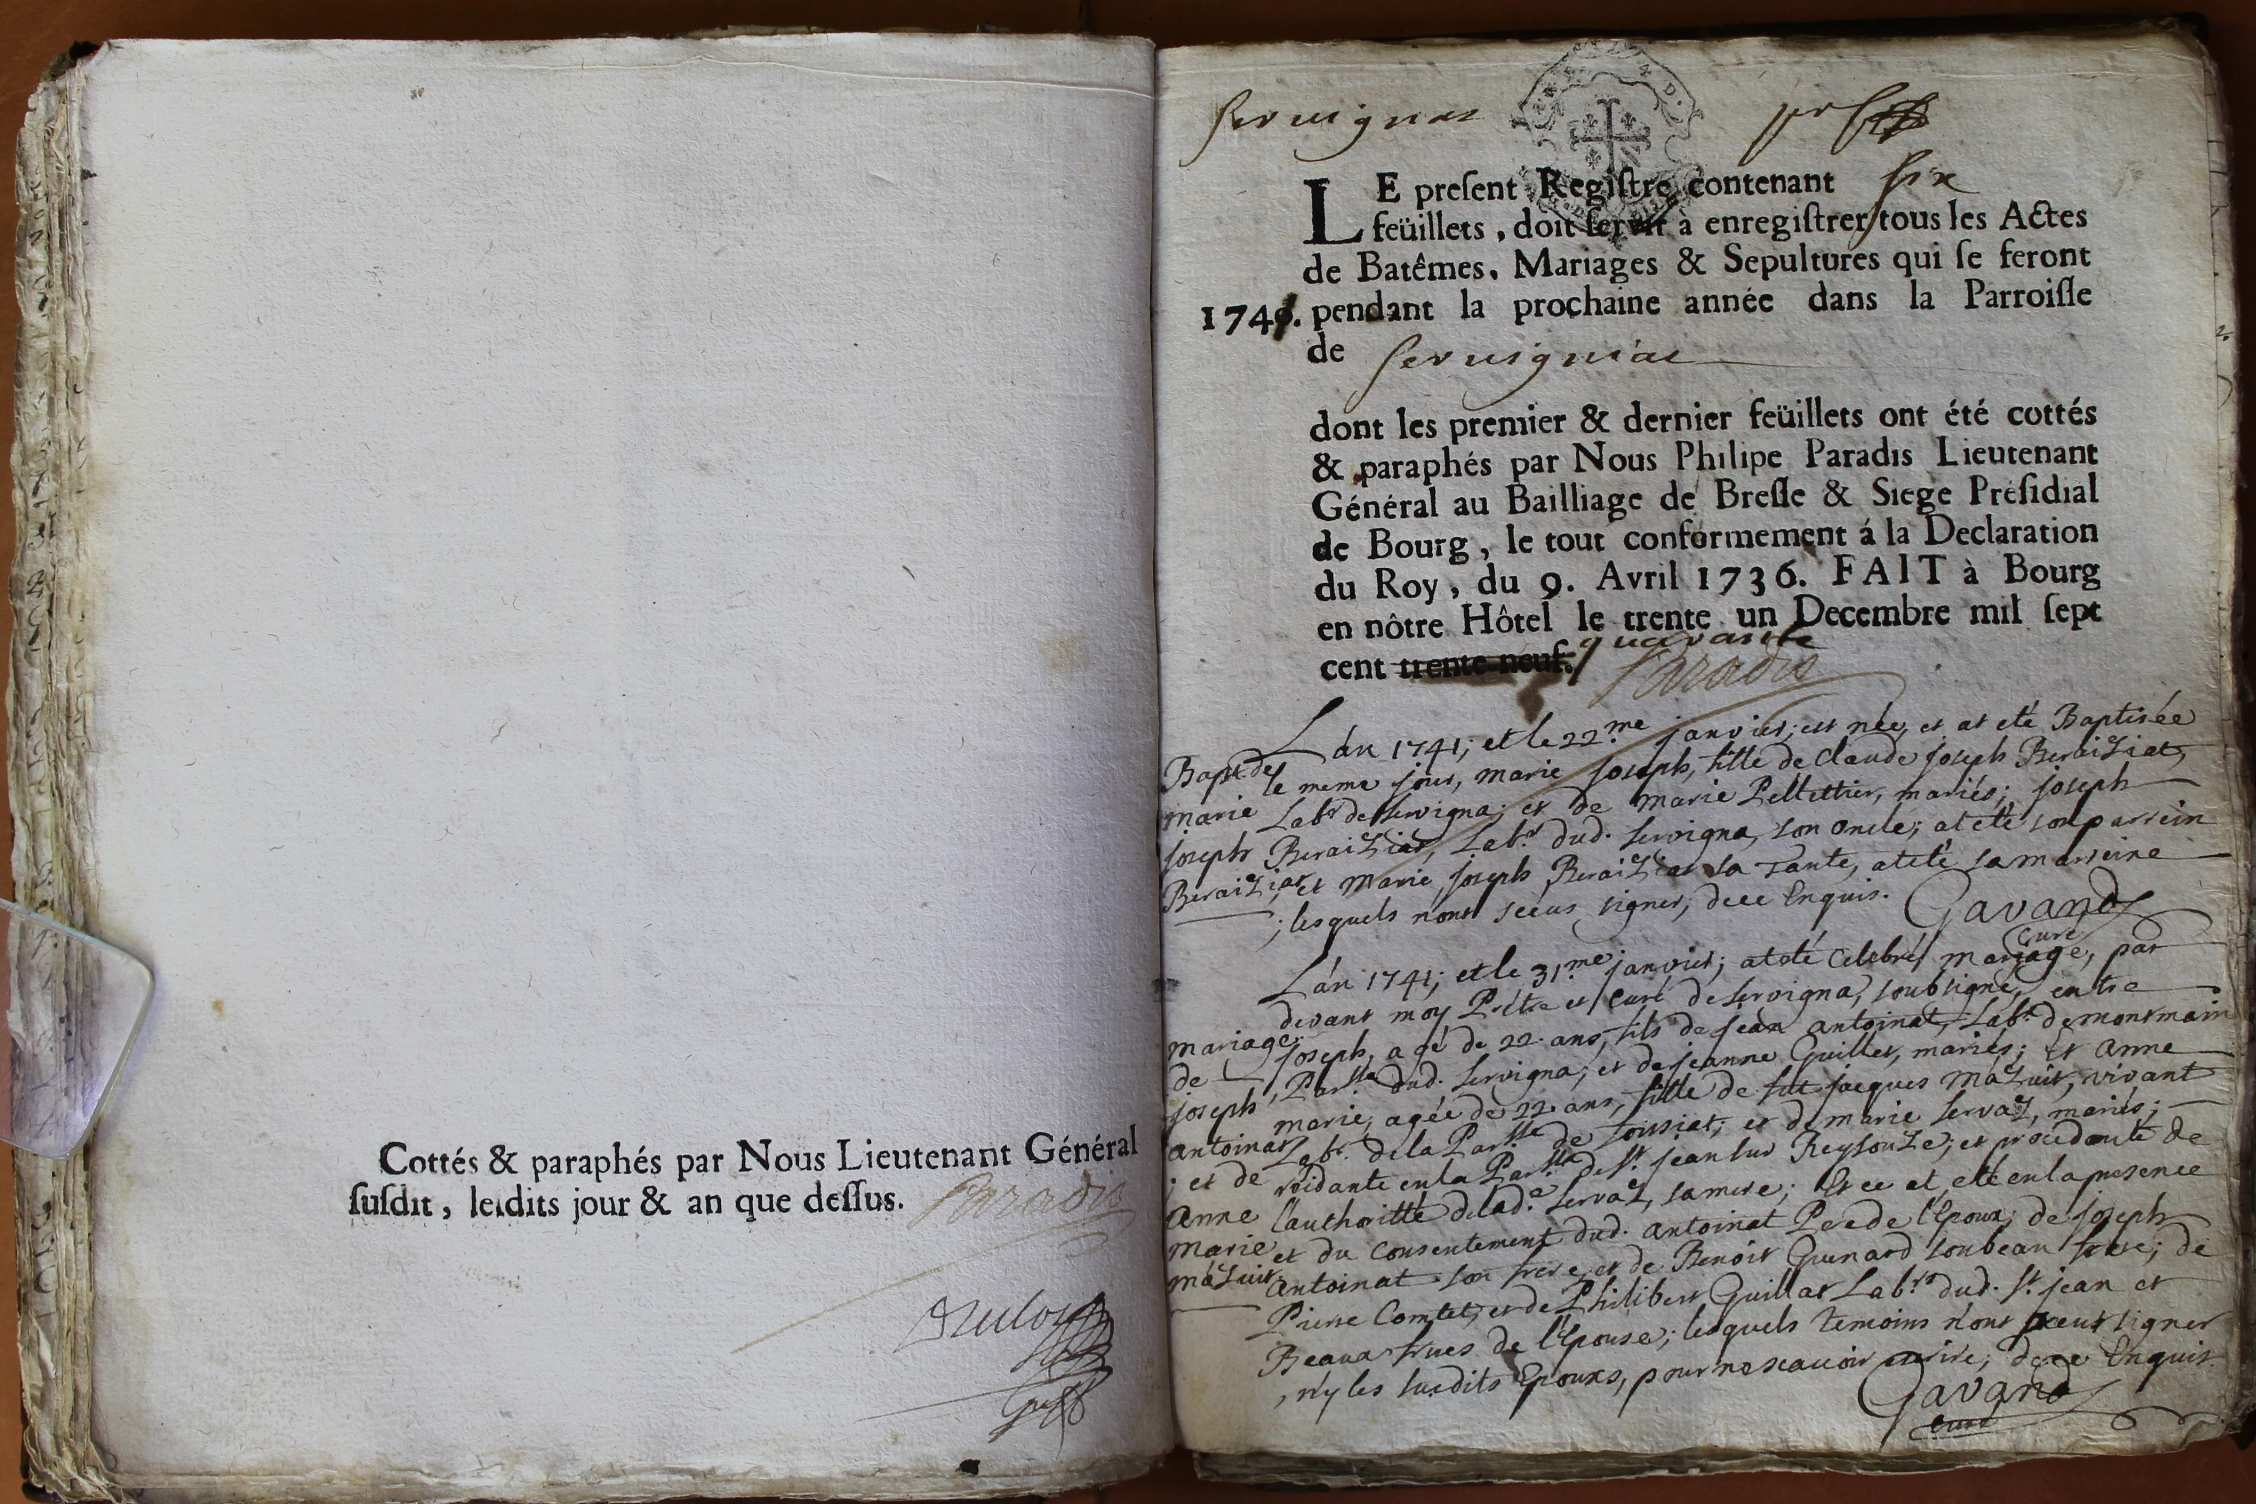 Cottés & paraphés par Nous Lieutenant Général
suſdit, leſdits jour & an que deſſus. Paradis
Servignat
LE preſent Regiſtre contenant six
feüillets, doit ſervir à enregiſtrer tous les Actes
de Batêmes, Mariages & Sepultures qui ſe feront
1741. pendant la prochaine année dans la Parroiſſe
de Servigniat
dont les premier & dernier feüillets ont été cottés
& paraphés par Nous Philipe Paradis Lieutenant
Général au Bailliage de Breſſe & Siege Préſidial
de Bourg, le tout conformement á la Declaration
du Roy, du 9. Avril 1736. FAIT à Bourg
en nôtre Hôtel le trente un Decembre mil ſept
cent trente neuf. quarante
Paradis
Bapt. de
marie
joseph
Beraiziat
L'an 1741; et le 22.me janvier; est née, et at eté Baptisée
le meme jour, marie joseph, fille de Claude joseph Beraiziat,
Labr. de servigna; et de marie Pellettier, mariés; joseph
Beraiziat, Labr. dud. servigna, son oncle; at eté son parrein
; et Marie joseph Beraiziat sa Tante, at eté sa marreine
; lesquels n'ont sceus signer, de ce Enquis. Gavand
Curé
mariage
de
joseph
antoinat
; et de
Anne
marie
mazuir
L'an 1741; et le 31.me janvier; at eté Celebré mariage, par
devant moy Prétre et Curé de servigna, soubsigné, entre
joseph, agé de 22. ans, fils de jean antoinat, Labr. de montmain
, Par.sse dud. servigna; et de jeanne Guillet, mariés; et anne
marie, agée de 22. ans, fille de fut jacques mazuir, vivant
Labr. de la Par.sse de Foissiat; et de marie servaz, mariés;
residante en la Par.sse de St. jean sur Reysouze; et procedante de
l'authoritté de lad.e servaz, sa mere; Et ce at eté en la presence
et du Consentement dud. antoinat Pere de l'Epoux; de joseph
antoinat son frere, et de Benoit Guenard son beau frere; de
Pierre Comtet, et de Philibert Guillat Lab.rs dud. St. jean et
Beaux freres de l'Epouse; lesquels temoins n'ont sceus signer
, n'y les susdits Epoux, pour ne scavoir ecrire; de ce Enquis.
Gavand
curé